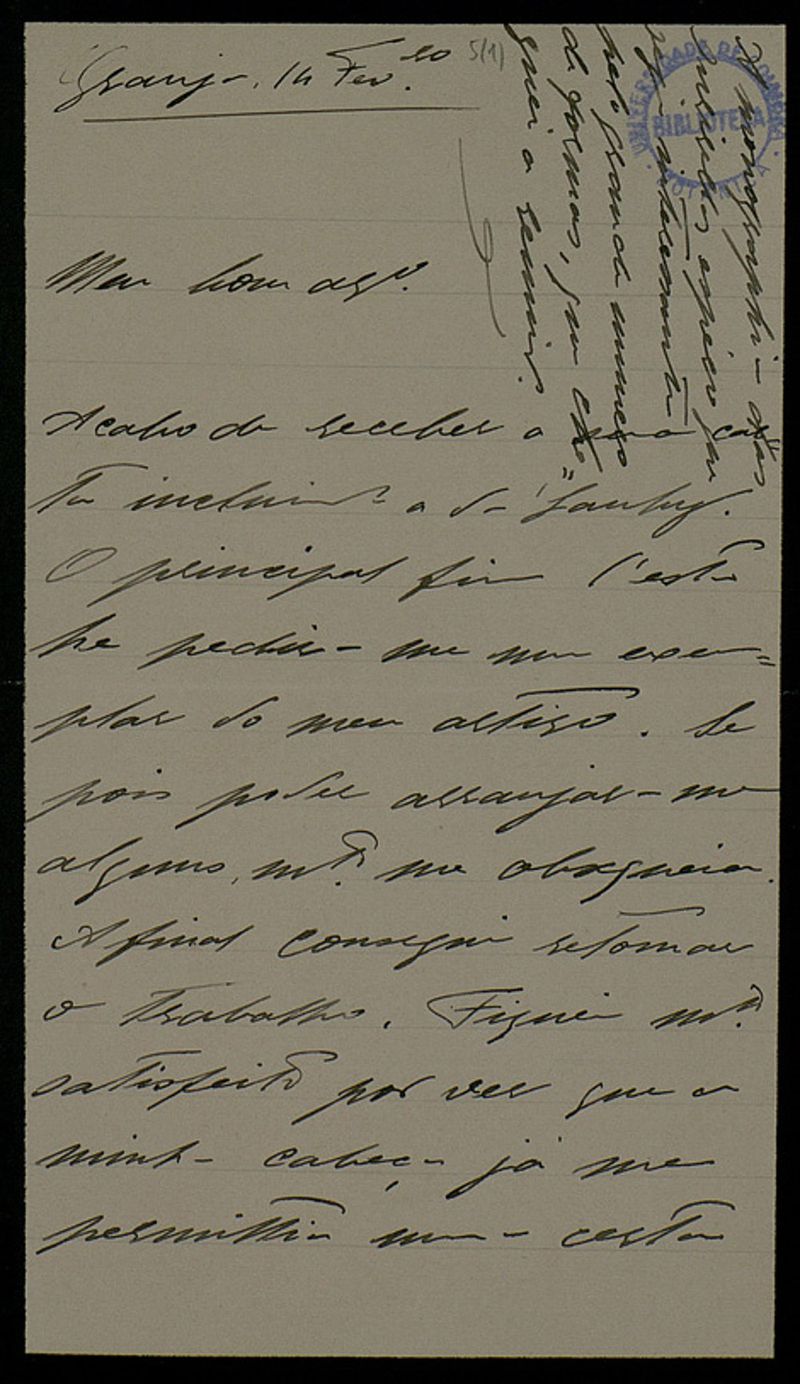 Granja, 14 Fev.ro
5(1)
Meu bom am.o
Acabo de receber a sua car
ta incluindo a de
O principal fim d'esta
he pedir-me um exem=
plar do meu artigo. Se
pois poder arranjar-me
alguns, mt.o me obsequeia.
Afinal consegui retomar
o trabalho. Fiquei mt.o
satisfeito por ver que a
minha cabeça já me
permittia uma certa
A monographia das
especies que
interessante
pelo grande numero
de formas, que che=
guei a reunir.
UNIVERSIDADE DE COIMBRA
BIBLIOTECA
BOTANICA